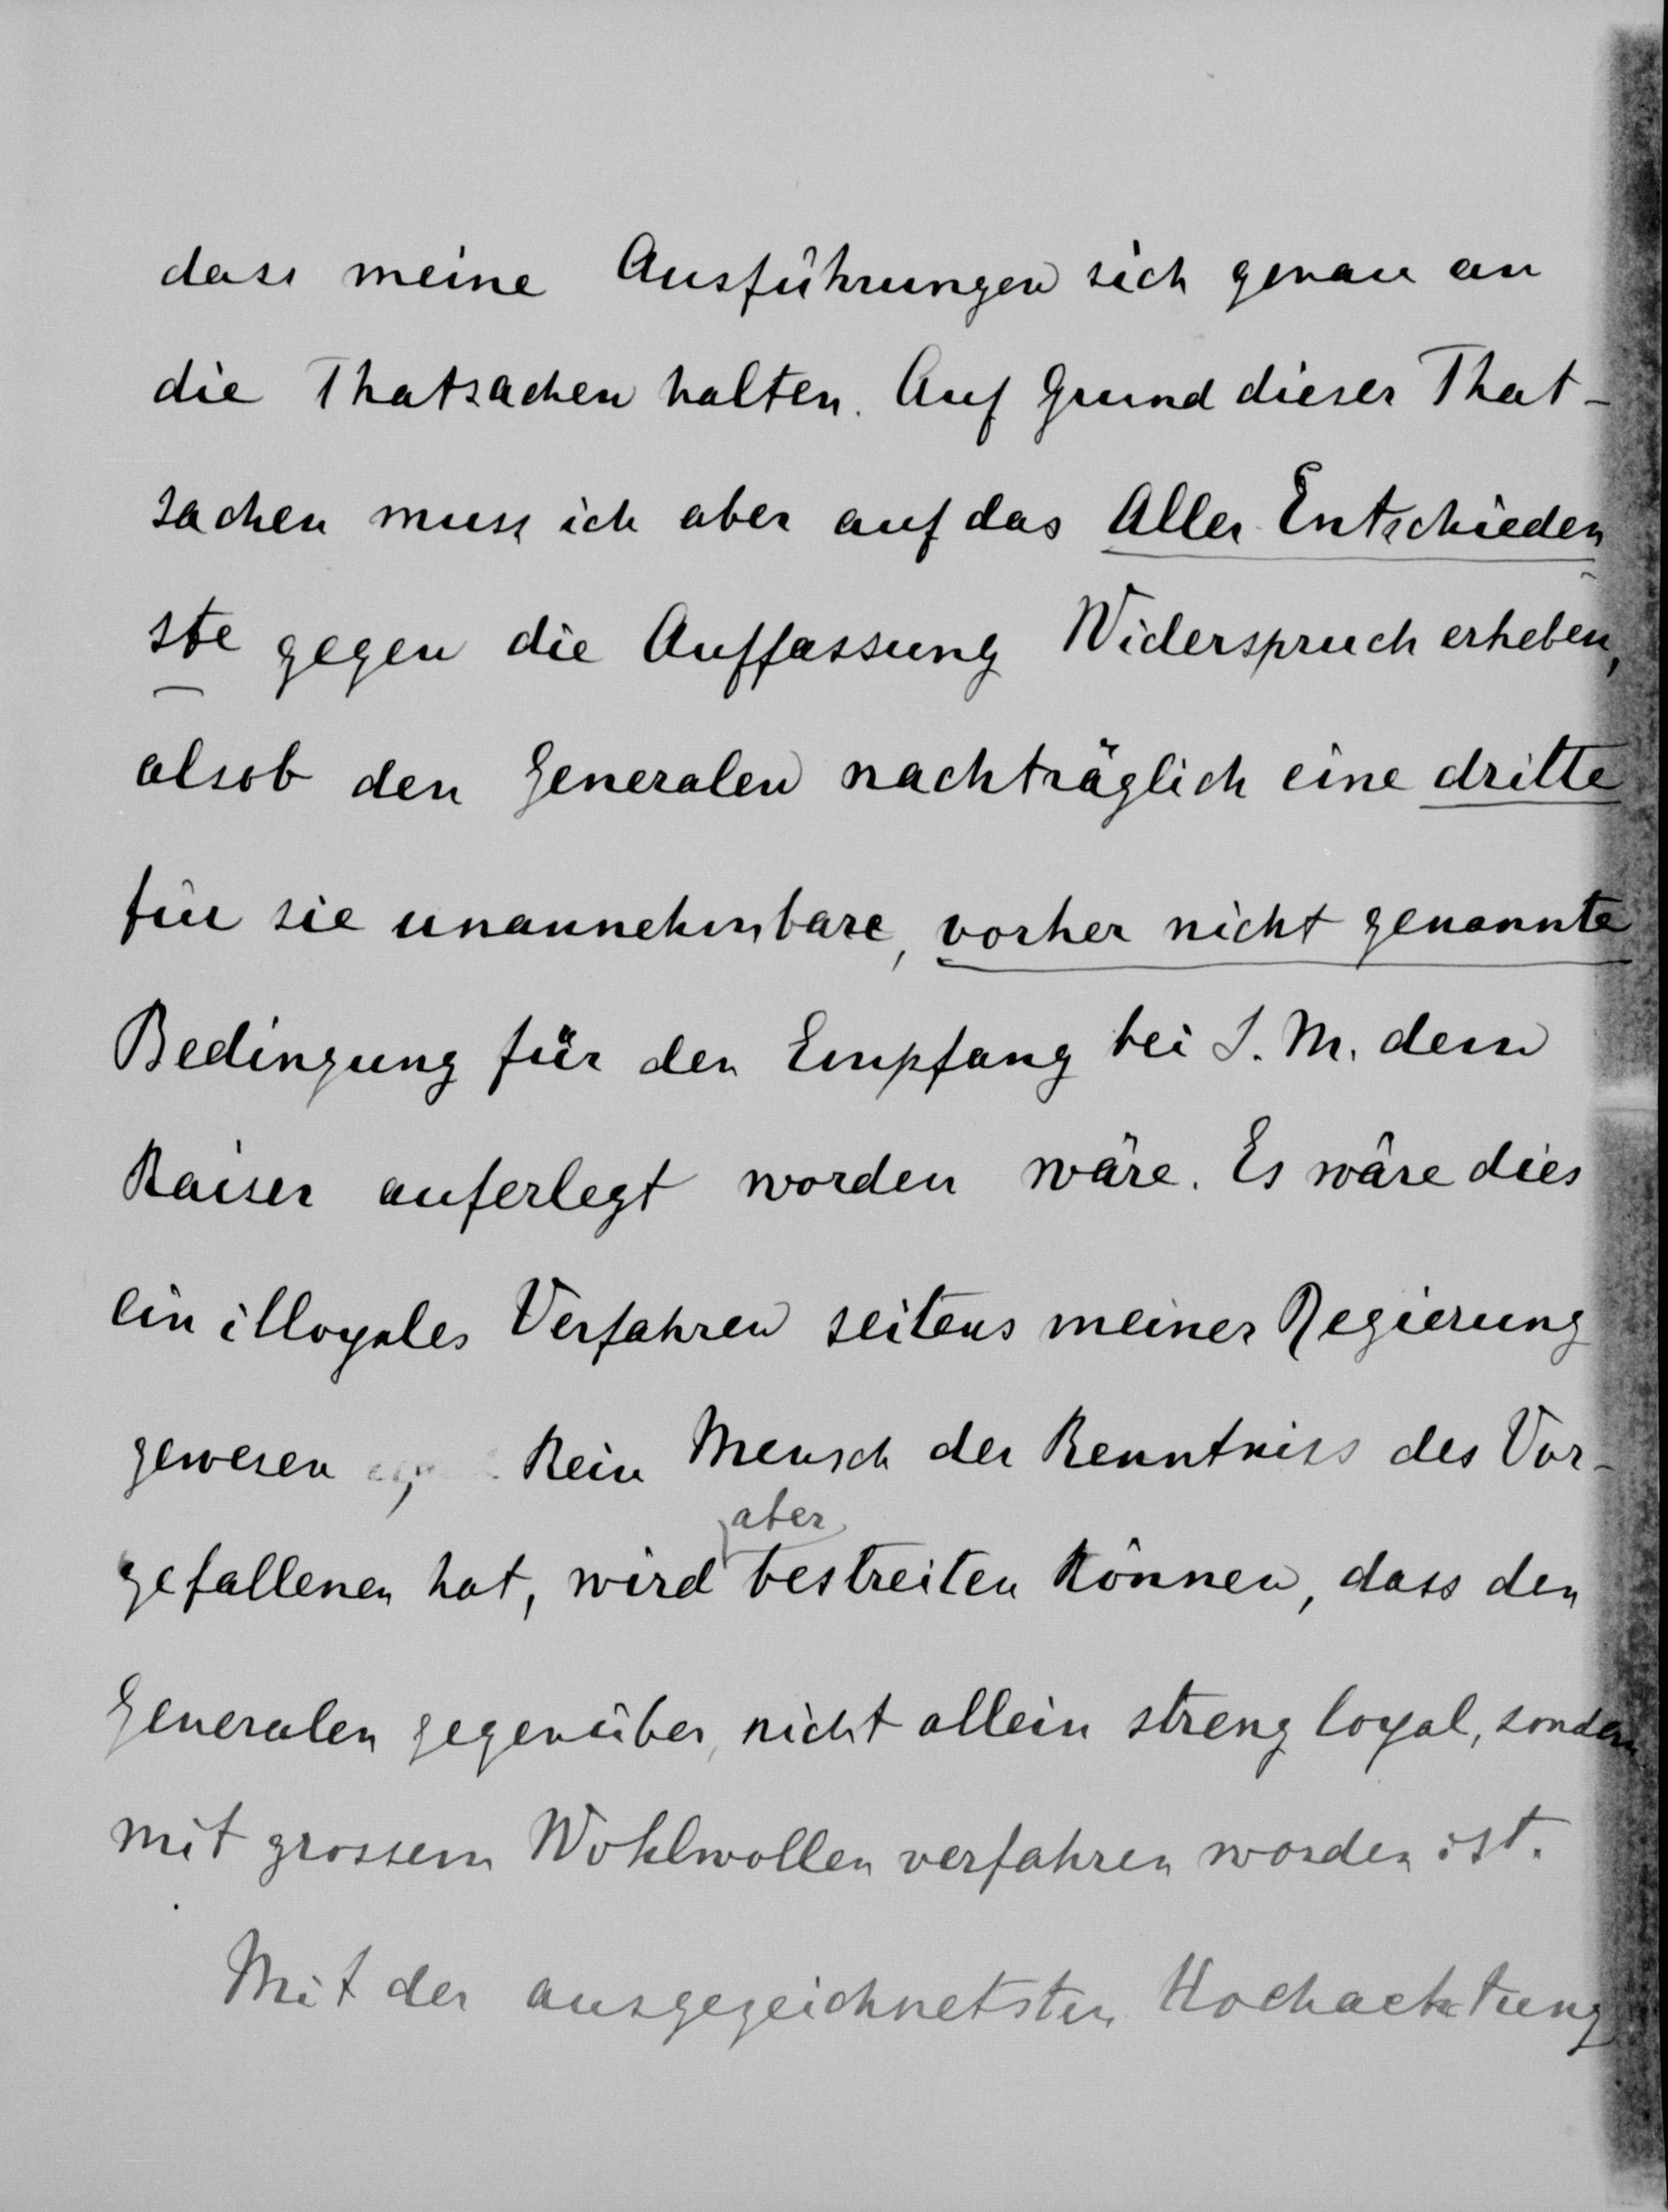 dass meine Ausführungen sich genau an
die Thatsachen halten. Auf Grund dieser That-
sachen muss ich aber auf das Aller Entschieden-
ste gegen die Auffassung Widerspruch erheben,
alsob den Generalen nachträglich eine dritte
für sie unannehmbare, vorher nicht genannte
Bedingung für den Empfang bei S. M. dem
Kaiser auferlegt worden wäre. Es wäre dies
ein illoyales Verfahren seitens meiner Regierung
gewesen, Kein Mensch der Kenntniss des Vor-
aber
gefallenen hat, wird bestreiten können, dass den
Generalen gegenüber, nicht allein streng loyal, sondern
mit grossem Wohlwollen verfahren worden ist.
Mit der ausgezeichnetsten Hochachtung